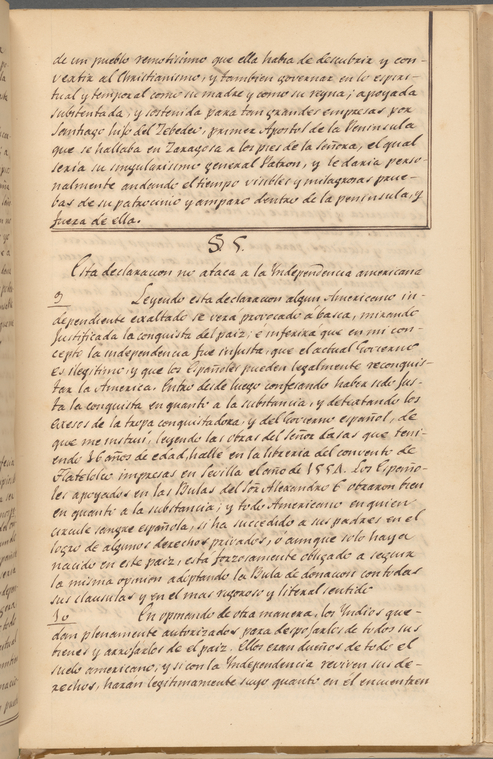 de un pueblo remotisimo que ella habia de descubrir y con-
vertir al Christianismo, y tambien governar en lo espiri-
tual y temporal como su madre y como su reyna; apoyada
substentada, y sostenida para tan grandes empresas por
Santiago hijo del Zebedeo, primer Apostol de la Peninsula
que se hallaba en Zaragoza a los pies de la Señora, el qual
seria su singularisimo general Patron, y le daria perso-
nalmente andando el tiempo visibles y milagrosas prue-
bas de su patrocinio y amparo dentro de la peninsula, y
fuera de ella.
§ 5.
Esta declaracion no ataca a la Independencia americana
9 Leyendo esta declaracion algun Americano in-
dependiente exaltado se vera provocado a basca, mirando
Justificada la conquista del paiz; e inferira que en mi con-
cepto la independencia fue injusta, que el actual Govierno
es ilegitimo, y que los Españoles pueden legalmente reconquis-
tar la America. Entro desde luego confesando haber sido Jus-
ta la conquista en quanto a la substancia, y detextando los
excesos de la tropa conquistadora, y del Govierno español, de
que me instrui, leyendo las obras del Señor Casas que teni-
endo 16 años de edad, halle en la libreria del convento de
Tlatelolco impresas en Sevilla el año de 1552. Los Españo-
les apoyados en las Bulas del Sor Alexandro 6 obraron bien
en quanto a la substancia; y todo Americano en quien
circule sangre española, si ha succedido a sus padres en el
logro de algunos derechos privados, o aunque solo haya
nacido en este paiz, esta forzosamente obligado a seguir
la misma opinion adoptando la Bula de donacion con todas
sus clausulas y en el mas riguroso y literal sentido
10 En opinando de otra manera, los Indios que-
dan plenamente autorizados para despojarlos de todos sus
bienes y arrojarlos de el paiz. Ellos eran dueños de todo el
suelo americano, y si con la Independencia reviven sus de-
rechos, harán legitimamente suyo quanto en él encuentren